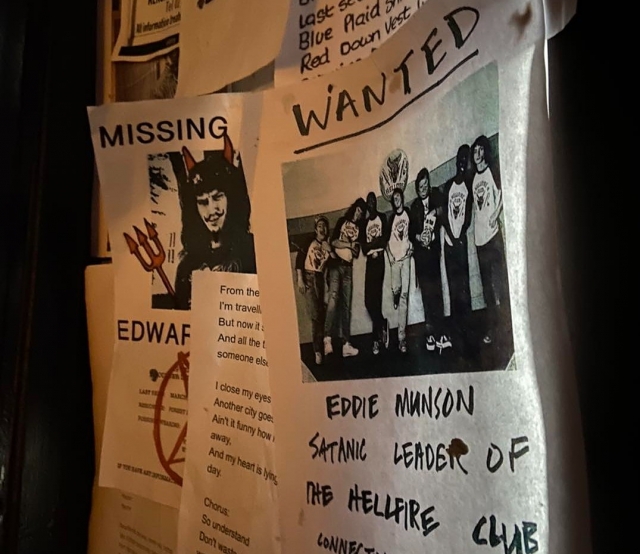 All information treat
Last se
Blue Plaid Sh
Red Down Vest
WANTED
MISSING
EDWAR
From the
I'm travell
But now it
And all the t
someone else
I close my eyes
Another city goes
Ain't it funny how
away,
And my heart is lying
day.
Chorus:
So understand
Don't wast
EDDIE MUNSON
SATANIC LEADER OF
THE HELLFIRE CLUB
CONNECT